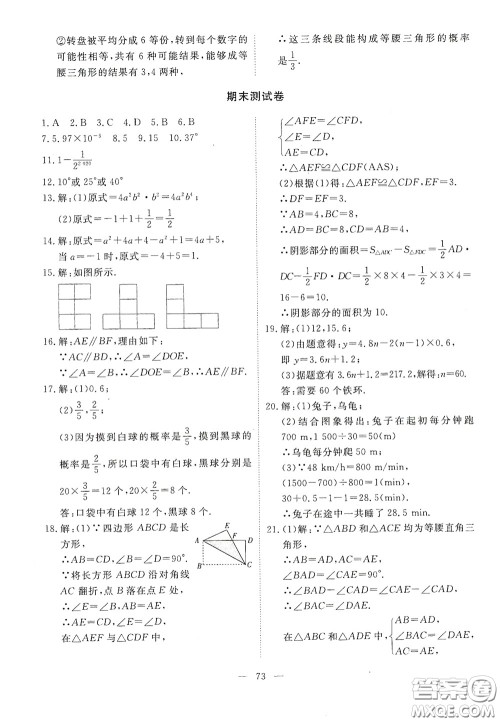 ②转盘被平均分成 6 等份,转到每个数字的
可能性相等,共有 6 种可能结果,能够成等
腰三角形的结果有 3,4 两种,
∴这三条线段能构成等腰三角形的概率
是 1/3.
期末测试卷
1. A 2. B 3. C 4. D 5. B 6. D
8. 5 9. 15 10. 37°
12. 10°或 25°或 40°
13. 解:(1)原式=4a²b²·b²=4a²b⁴.
(2)原式=-1+1+1/2=1/2.
14. 解:原式=a²+4a+4-a²=4a+4.
当 a=-1 时,原式=-4+4=0.
15. 解:如图所示.
16. 解:AE∥BF,理由如下:
∵AC∥BD,∴∠A=∠DOE.
∵∠A=∠B,∴∠B=∠DOE,∴AE∥BF.
17. 解:(1)0.6;
(2)2/5;3/5;
(3)因为摸到白球的概率是 3/5,摸到黑球的
概率是 2/5,所以口袋中有白球,黑球分别是
20×3/5=12 个,20×2/5=8 个.
答:口袋中有白球 12 个,黑球 8 个.
18. 解:(1)∵四边形 ABCD 是长
方形,
∴AB=CD,∠B=∠D=90°.
∵将长方形 ABCD 沿对角线
AC 翻折,点 B 落在点 E 处,
∴∠E=∠B,AB=AE,
∴AE=CD,∠E=∠D.
在△AEF 与△CDF 中,
E
F
A
D
B
C
∠AFE=∠CFD,
∠E=∠D,
AE=CD,
∴△AEF≌△CDF(AAS);
(2)根据(1)得:△AEF≌△CDF,EF=3.
∴DF=EF=3.
∵AB=4,BC=8,
∴AD=BC=8,CD=AB=4,
∴阴影部分的面积=S△ADC-S△DCF=1/2AD·
DC-1/2FD·DC=1/2×8×4-1/2×3×4=
16-6=10.
∴阴影部分的面积为 10.
(2)由题意得:y=4.8n-2(n-1)×0.6,
即 y=3.6n+1.2;
(3)据题意有 3.6n+1.2=217.2,解得 n=60.
答:需要 60 个铁环.
(1)兔子,乌龟;
(2)结合图象得出:兔子在起初每分钟跑
700 m,1500÷30=50(m)
∴乌龟每分钟爬 50 m;
(3)∵48 km/h=800(m/min),
(1500-700)÷800=1(min),
30+0.5-1-1=28.5(min).
∴兔子在途中一共睡了 28.5 min.
21. 解:(1)∵△ABD 和△ACE 均为等腰直角三
角形,
∴AB=AD,AC=AE,∠BAD=∠CAE=90°,
∴∠BAD+∠DAC=∠CAE+∠DAC,
即∠BAC=∠DAE,
在△ABC 和△ADE 中,
AB=AD,
∠BAC=∠DAE,
AC=AE,
— 73 —